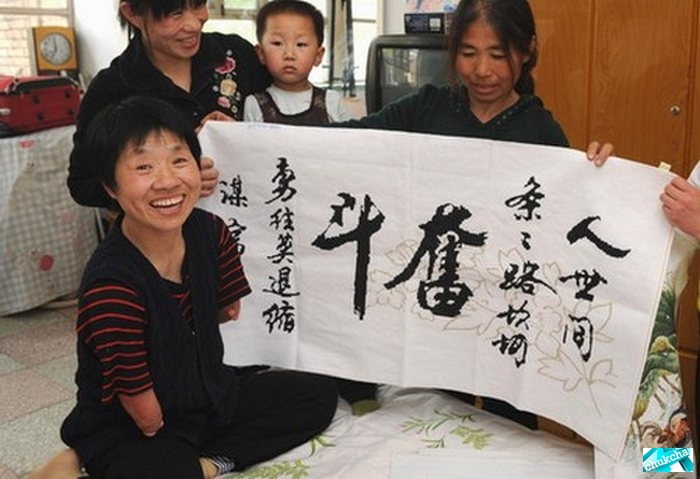 人世间
条々路坎坷
奮斗
勇往莫退缩
谋富
chukcha